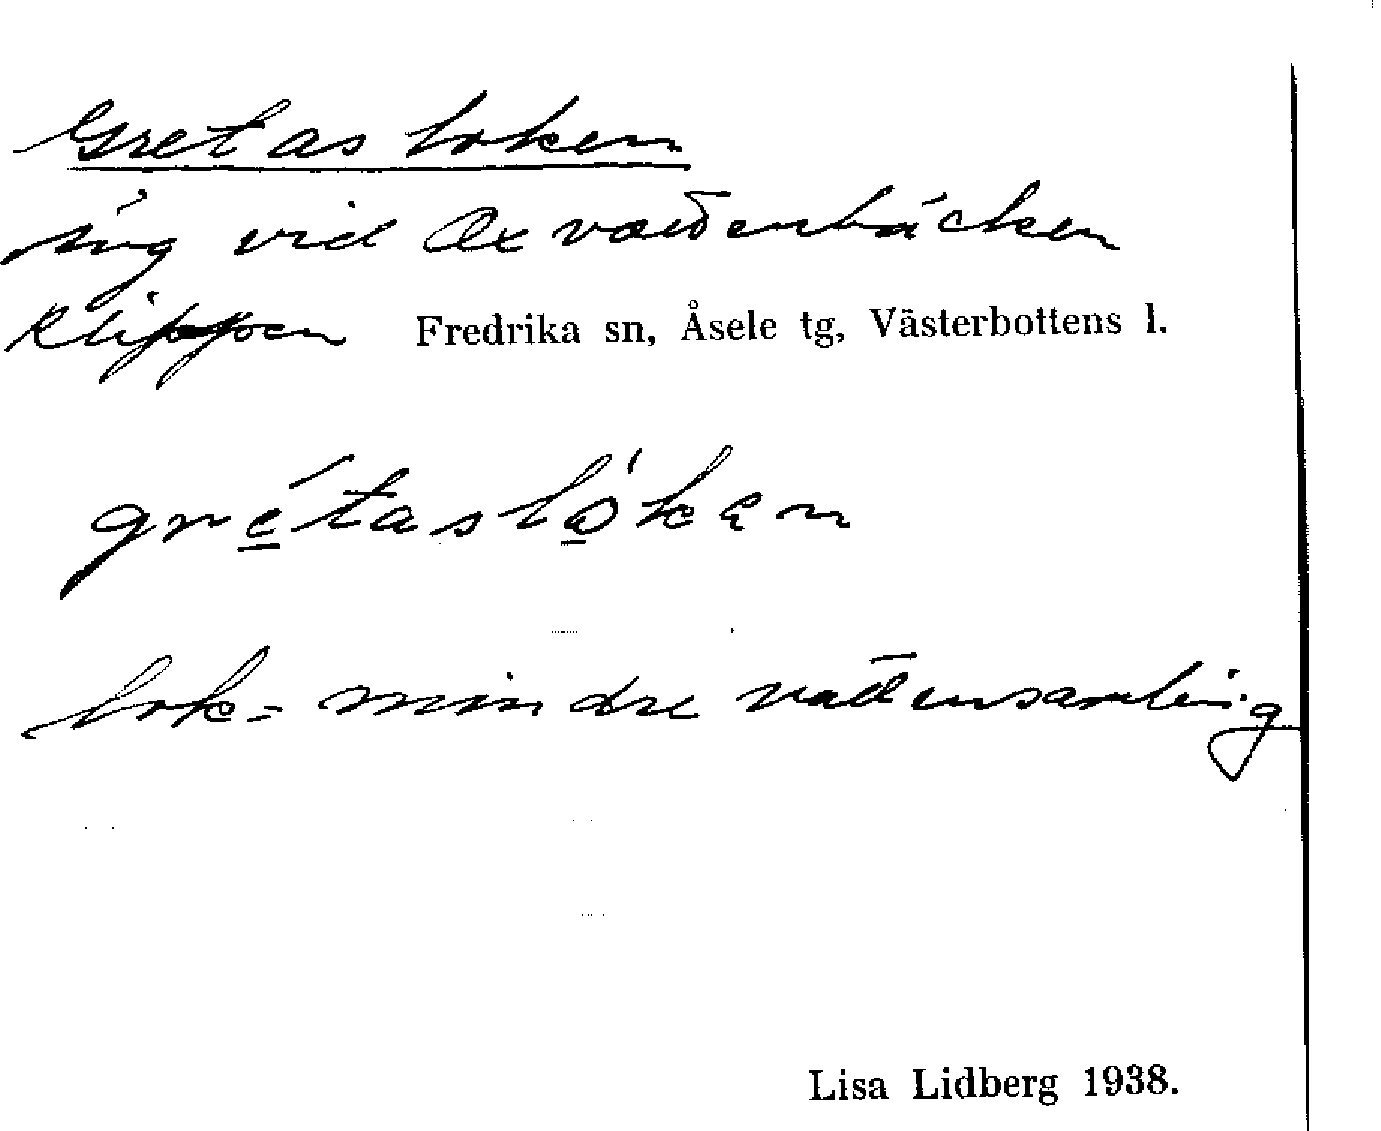 Gretasloken
äng vid Oxvattenbäcken
Klippen Fredrika sn, Åsele tg, Västerbottens l.
grétaslókən
lok = mindre vattensamling
Lisa Lidberg 1938.